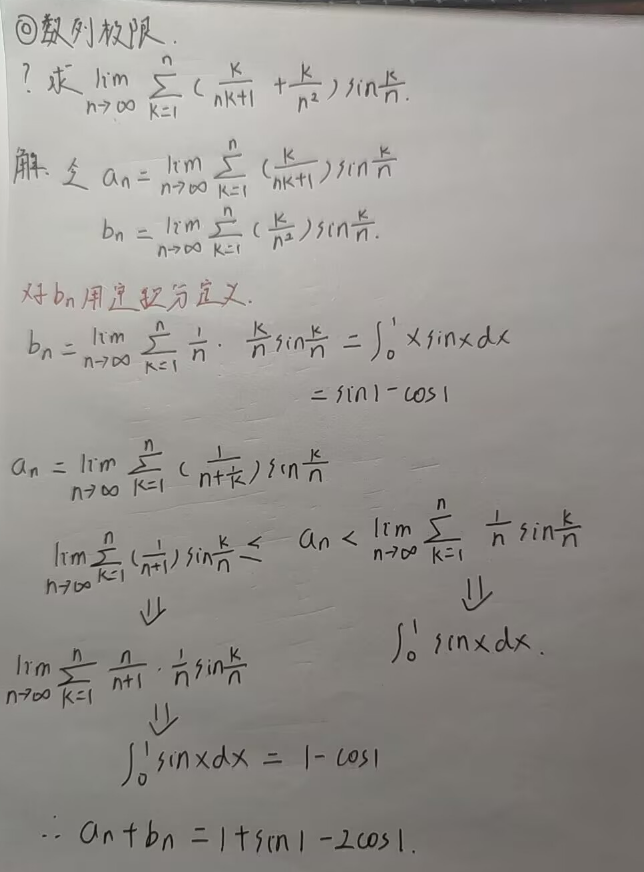 ◎数列极限.
? 求 lim n→∞ ∑ k=1 n ( k/(nk+1) + k/n² ) sin k/n.
解. 令 aₙ = lim n→∞ ∑ k=1 n ( k/(nk+1) ) sin k/n
bₙ = lim n→∞ ∑ k=1 n ( k/n² ) sin k/n.
对bₙ用定积分定义.
bₙ = lim n→∞ ∑ k=1 n 1/n · k/n sin k/n = ∫₀¹ x sinx dx
= sin1 - cos1
aₙ = lim n→∞ ∑ k=1 n ( 1/(n+1/k) ) sin k/n
lim n→∞ ∑ k=1 n ( 1/(n+1) ) sin k/n ≤ aₙ < lim n→∞ ∑ k=1 n 1/n sin k/n
⇓ ⇓
lim n→∞ ∑ k=1 n n/(n+1) · 1/n sin k/n ∫₀¹ sinx dx.
⇓
∫₀¹ sinx dx = 1 - cos1
∴ aₙ + bₙ = 1 + sin1 - 2cos1.